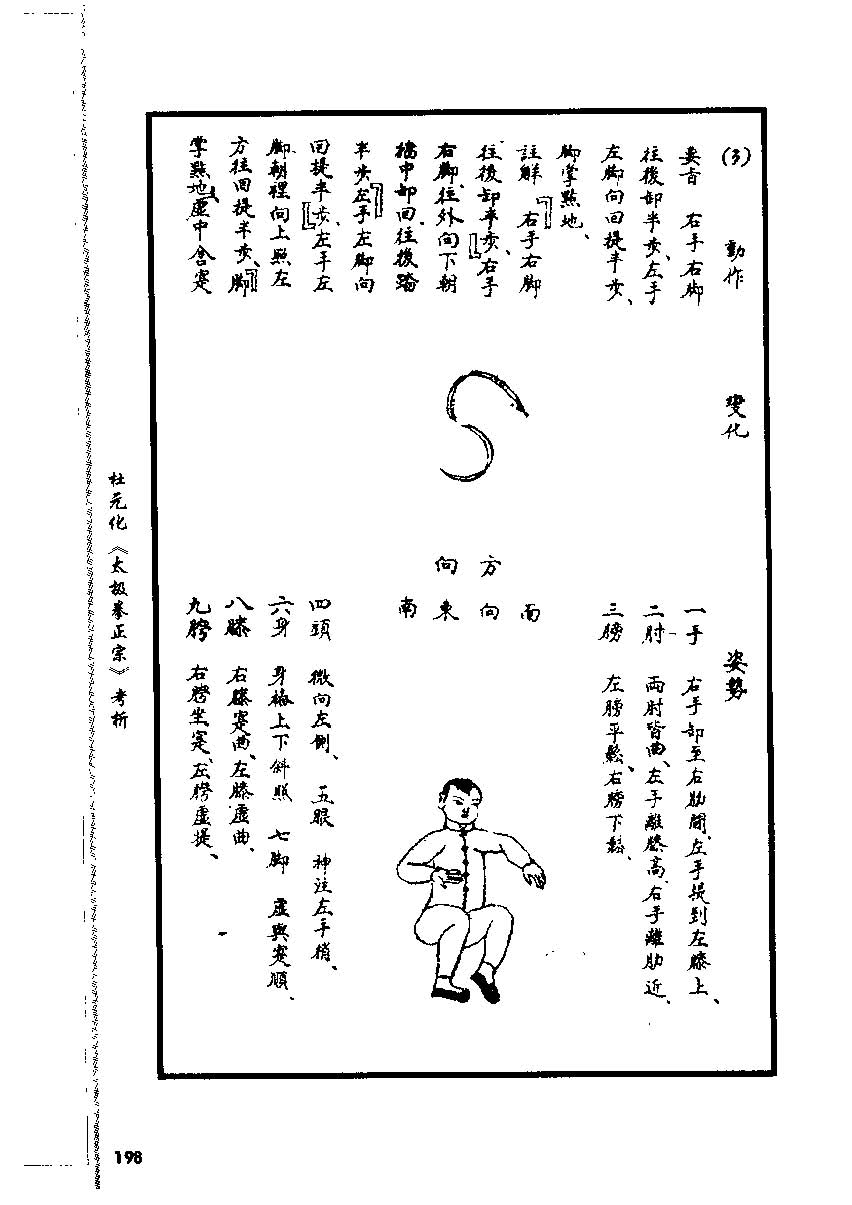 (3)
動作
要旨 右手右脚
往後卸半步、左手
左脚向回提半步、
脚掌點地、
註解 『右手右脚
往後卸半步、』右手
右脚、往外向下朝
襠中卸回、往後踏
半步『左手左脚向
回提半步、』左手左
脚、朝裡向上照左
方往回提半步、『脚
掌點地』虛中含寔
變化
方向
面向東南
姿勢
一手 右手卸至右肋間、左手提到左膝上、
二肘 兩肘皆曲、左手離膝高、右手離肋近、
三膀 左膀平鬆、右膀下鬆、
四頭 微向左側、 五眼 神注左手梢、
六身 身樁上下斜照 七脚 虛與寔順、
八膝 右膝寔曲、左膝虛曲、
九胯 右胯坐寔、左胯虛提、
杜元化《太极拳正宗》考析
198